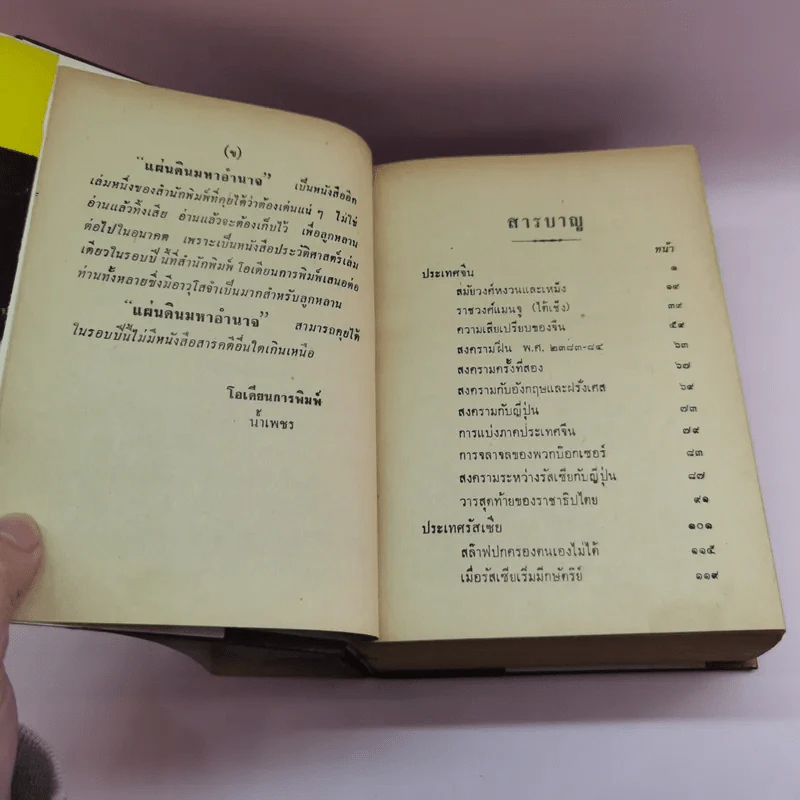 (ข)
“แผ่นดินมหาอำนาจ” เป็นหนังสืออีก
เล่มหนึ่งของสำนักพิมพ์ที่คุยได้ว่าต้องเด่นแน่ ๆ ไม่ใช่
อ่านแล้วทิ้งเสีย อ่านแล้วจะต้องเก็บไว้ เพื่อลูกหลาน
ต่อไปในอนาคต เพราะเป็นหนังสือประวัติศาสตร์เล่ม
เดียวในรอบปี นี้ที่สำนักพิมพ์ โอเดียนการพิมพ์เสนอต่อ
ท่านทั้งหลายซึ่งมีอาวุโสจำเป็นมากสำหรับลูกหลาน
“แผ่นดินมหาอำนาจ” สามารถคุยได้
ในรอบปีนี้ไม่มีหนังสือสารคดีอื่นใดเกินเหนือ
โอเดียนการพิมพ์
น้ำเพชร
สารบาญ
หน้า
ประเทศจีน ๑
สมัยวงศ์หงวนและเหม็ง ๑๙
ราชวงศ์แมนจู (ไต้เช็ง) ๓๙
ความเสียเปรียบของจีน ๕๙
สงครามฝิ่น พ.ศ. ๒๓๘๓-๘๔ ๖๓
สงครามครั้งที่สอง ๖๗
สงครามกับอังกฤษและฝรั่งเศส ๖๙
สงครามกับญี่ปุ่น ๗๓
การแบ่งภาคประเทศจีน ๗๙
การจลาจลของพวกบ๊อกเซอร์ ๘๓
สงครามระหว่างรัสเซียกับญี่ปุ่น ๘๗
วารสุดท้ายของราชาธิปไตย ๙๑
ประเทศรัสเซีย ๑๐๑
สล๊าฟปกครองตนเองไม่ได้ ๑๑๕
เมื่อรัสเซียเริ่มมีกษัตริย์ ๑๑๙